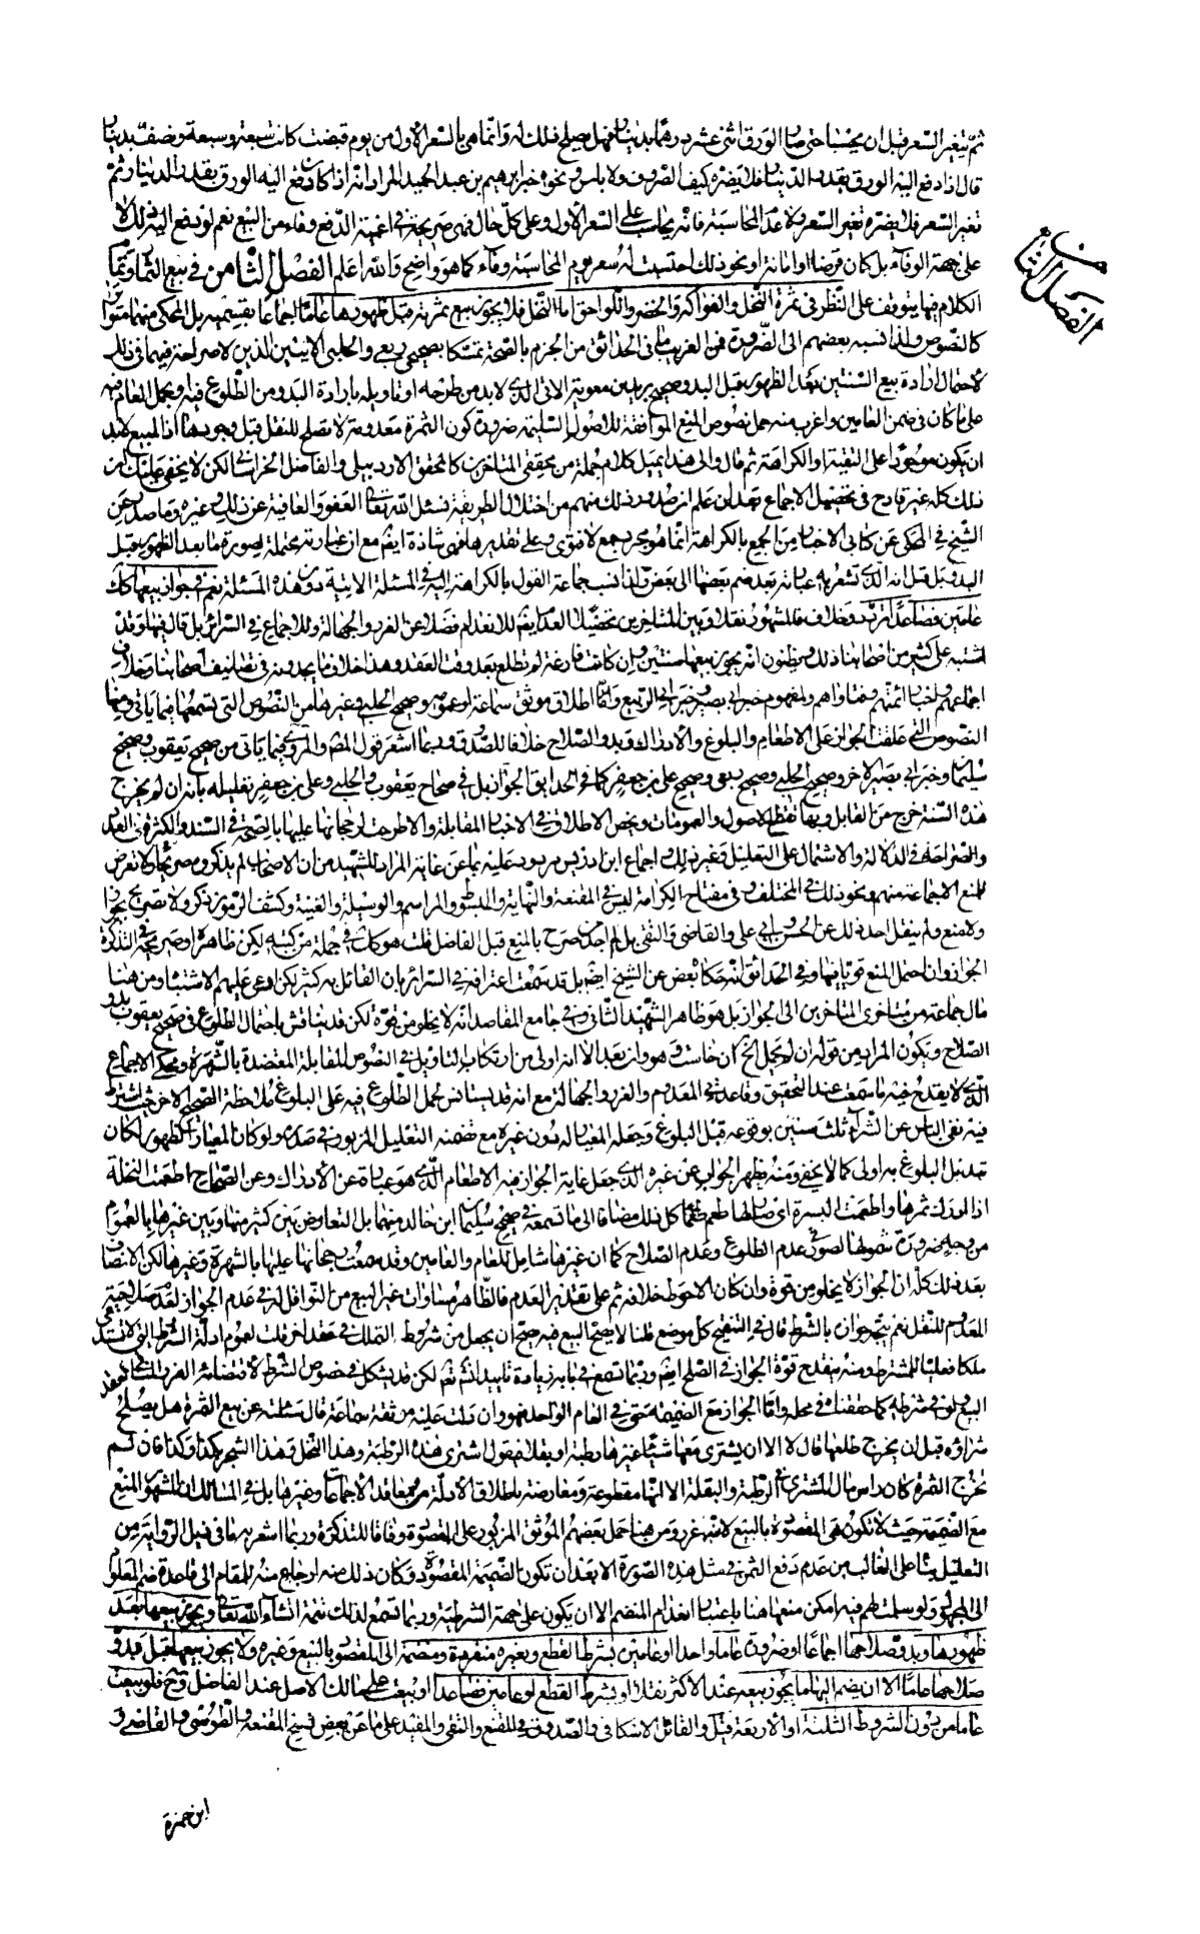 ثم يتغير السعر قبل ان يحتسبا حتى صار الورق اثنى عشر درهما بدينار فهل يصلح ذلك له وانما هى بالسعر الاول من يوم قبضت كانت سبعة وسبعة ونصف بدينار
قال اذا دفع اليه الورق بقدر الدنانير فلا يضره كيف الصروف ولا باس ونحوه خبر ابرهيم بن عبد الحميد المراد انه اذا كان دفع اليه الورق بقدر الدنانير ثم
تغير السعر فلا يضره تغير السعر ولا عدم المحاسبة فانه يحاسب على السعر الاول وعلى كل حال فهى صريحة فى اعمية الدفع وفاء من البيع نعم لو دفع اليه ذلك لا
على جهة الوفاء بل كان قرضا او امانة او نحو ذلك احتسبت له سعر يوم المحاسبة وفاء كما هو واضح والله اعلم الفصل الثامن فى بيع الثمار وتمام
الفصل الثامن
الكلام فيها يتوقف على النظر فى ثمرة النخل والفواكه والخضر واللواحق اما النخل فلا يجوز بيع ثمرته قبل ظهورها عاما اجماعا بقسميه بل المحكى منهما متواتر
كالنصوص ولذا نسبه بعضهم الى الضرورة فمن الغريب ما فى الحدائق من الجزم بالصحة تمسكا بصحيحى ربعى والحلبى الاتيين الذين لا صراحة فيهما فى ذلك
لاحتمال ارادة بيع السنتين بعد الظهور قبل البدو وصحيح بريد بن معوية الاتى الذى لابد من طرحه او تاويله بارادة البدو من الطلوع فيه وبحمل العام فيه
على ما كان فى ضمن العامين واغرب منه حمل نصوص المنع الموافقة للاصول السليمة ضرورة كون الثمرة معدومة لا تصلح للنقل قبل وجودها اذ المبيع لابد
ان يكون موجودا على التقية او الكراهة ثم قال والى هذا يميل كلام جملة من محققى المتاخرين كالمحقق الاردبيلى والفاضل الخراسانى لكن لا يخفى عليك ان
ذلك كله غير قادح فى تحصيل الاجماع بعد ان علم ان صدور ذلك منهم من اختلال الطريقة نسئل الله تعالى العفو والعافية عن ذلك وغيره وما صدر عن
الشيخ فى المحكى عن كتابى الاخبار من الجمع بالكراهة انما هو مجرد جمع لا فتوى وعلى تقديرها فهى شاذة ايضا مع ان عبارته محتملة لصورة ما بعد الظهور وقبل
البدو قبل انه الذى تشعر به عبارته بعد ضم بعضها الى بعض ولذا نسب جماعة القول بالكراهة اليه فى المسئلة الاتية دون هذه المسئلة نعم فى جواز بيعها كك
عامين فصاعدا تردد وخلاف فالمشهور نقلا وبين المتاخرين تحصيلا العدم ايضا للانعدام فضلا عن الغرر والجهالة وللاجماع فى السرائر بل قال فيها وقد
اشتبه على كثير من اصحابنا ذلك ويظنون انه يجوز بيعها سنتين وان كانت فارغة لم تطلع بعد وقت العقد وهذا خلاف ما يجدونه فى تصانيف اصحابنا وخلاف
اجماعهم واخبار ائمتهم وفتاواهم ولمفهوم خبر ابى بصير وخبر ابى الربيع واما اطلاق موثق سماعة او عمومه وصحيح الحلبى وغيرها من النصوص التى تسمعها فيما ياتى ومنها
النصوص التى علقت الجواز على الاطعام والبلوغ والادراك وبدو الصلاح خلافا للصدوق وربما اشعر قول المصنف والمروى فيما ياتى من صحيح يعقوب وصحيح
سليمان وخبر ابى بصير الاخر وصحيح الحلبى وصحيح ربعى وصحيح على بن جعفر كما فى الحدائق الجواز بل فى صحاح يعقوب والحلبى وعلى بن جعفر تعليله بانه ان لم يخرج
هذه السنة خرج من القابل وبها تقطع الاصول والعمومات ويخص الاطلاق فى الاخبار المقابلة والا طرحت لرجحانها عليها بالصحة فى السند والكثرة فى العدد
والصراحة فى الدلالة والاشتمال على التعليل وغير ذلك واجماع ابن ادريس مردود عليه بما عن غاية المراد للشهيد من ان الاصحاب لم يذكروه صريحا ولا تعرض
للمنع الا جماعة منهم ونحو ذلك فى المختلف وفى مفتاح الكرامة ليس فى المقنعة والنهاية والمبسوط والمراسم والوسيلة والغنية وكشف الرموز ذكر ولا تصريح بجواز
ولا منع ولم ينقل احد ذلك عن الحسن وابى على والقاضى والتقى بل لم اجد من صرح بالمنع قبل الفاضل قلت هو كك فى جملة من كتبه لكن ظاهره او صريحه فى التذكرة
الجواز وان احتمل المنع قويا فيها وفى الحدائق انه حكاه بعض عن الشيخ ايضا بل قد سمعت اعترافه فى السرائر بان القائل به كثير لكن ادعى عليهم الاشتباه ومن هنا
مال جماعة من متاخرى المتاخرين الى الجواز بل هو ظاهر الشهيد الثانى وفى جامع المقاصد انه لا يخلو من قوة لكن قد يناقش باحتمال الطلوع فى صحيح يعقوب بدو
الصلاح ويكون المراد من قوله ان لم يحمل الخ ان خاست وهو وان بعد الا انه اولى من ارتكاب التاويل فى النصوص المقابلة المعتضدة بالشهرة ومحكى الاجماع
الذى لا يقدح فيه ما سمعت عند التحقيق وقاعدتى المعدوم والغرر والجهالة مع انه قد يستانس لحمل الطلوع فيه على البلوغ ملاحظة الصحيح الاخر حيث اشترط
فيه نفى الباس عن الشراء ثلث سنين بوقوعه قبل البلوغ وجعله المعيار له دون غيره مع تضمنه التعليل المزبور فى صدره ولو كان المعيار الظهور لكان
تبديل البلوغ به اولى كما لا يخفى ومنه يظهر الجواب عن غيره الذى جعل غاية الجواز فيه الاطعام الذى هو عبارة عن الادراك وعن الصحاح اطعمت النخلة
اذا ادرك ثمرها واطعمت البسرة اى صار لها طعم طعما كل ذلك مضافا الى ما تسمعه فى صحيح سليمان ابن خالد ومنهما بل التعارض بين كثير منها وبين غيرها بالعموم
من وجه ضرورة شمولها لصورتى عدم الطلوع وعدم الصلاح كما ان غيرها شامل للعام والعامين وقد سمعت رجحانها عليها بالشهرة وغيرها لكن الانصاف
بعد ذلك كله ان الجواز لا يخلو من قوة وان كان الاحوط خلافه ثم على تقدير العدم فالظاهر مساوات غير البيع من النواقل له فى عدم الجواز لعدم صلاحية
المعدوم للنقل نعم يتجه جوازه بالشرط قال فى التنقيح كل موضع قلنا لا يصح البيع فيه صح ان يجعل من شروط التملك فى عقد اخر قلت لعموم ادلة الشرط التى لا تستدعى
ملكا فعليا للمشترط ومنه ينقدح قوة الجواز فى الصلح ايضا وربما تسمع فى بابه زيادة تاييد لذلك ثم لكن قد يشكل فى خصوص الشرط لاقتضائه الغرر
البيع لو فى شرطه كما حققناه فى محله واما الجواز مع الضميمة حتى فى العام الواحد فهو وان دلت عليه موثقة سماعة قال سئلته عن بيع الثمرة هل يصلح
شراؤه قبل ان يخرج طلعها قال لا الا ان يشترى معها شيئا غيرها رطبة او بقلا فيقول اشترى هذه الرطبة وهذا النخل وهذا الشجر بكذا وكذا فان لم
تخرج الثمرة كان راس مال المشترى فى الرطبة والبقلة الا انها مقطوعة ومعارضة باطلاق الادلة من معاقد الاجماعات وغيرها بل فى المسالك ان المشهور المنع
مع الضميمة حيث لا تكون هى المقصودة بالبيع لانه غرر ومن هنا حمل بعضهم الموثق المزبور على المقصودة وفاقا للتذكرة وربما اشعر به ما فى ذيل الرواية من
التعليل بناء على الغالب من عدم دفع الثمن فى مثل هذه الصورة الا بعد ان تكون الضميمة المقصودة وكان ذلك منه ارجاع منه للمقام الى قاعدة ضم المعلوم
الى المجهول ولو سلمت لهم فيه امكن منعها هنا باعتبار انعدام المنضم الا ان يكون على جهة الشرطية وربما تسمع لذلك تتمة انشاء الله تعالى ويجوز بيعها بعد
ظهورها وبدو صلاحها اجماعا او ضرورة عاما واحدا او عامين بشرط القطع وبغيره منفردة ومنضمة الى المقصود بالبيع وغيره ولا يجوز بيعها قبل بدو
صلاحها عاما الا ان يضم اليها ما يجوز بيعه عند الاكثر نقلا او بشرط القطع او عامين فصاعدا او بيعت على مالك الاصل عند الفاضل وح فلو بيعت
عاما من دون الشروط الثلثة او الاربعة قيل والقائل الاسكافى والصدوق فى المقنع والتقى والمفيد على ما عن بعض نسخ المقنعة والطوسى والقاضى و
ابن حمزة